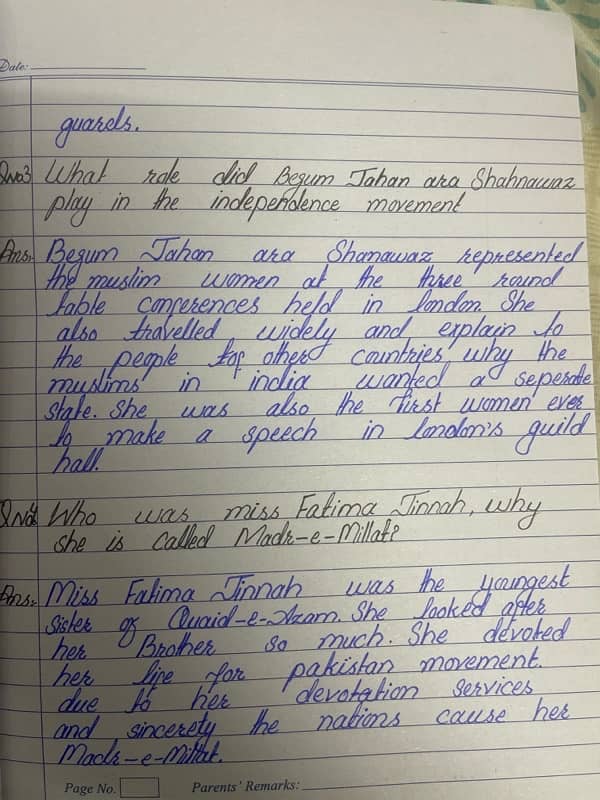 Date:
guards.
Qno3 What role did Begum Jahan ara Shahnawaz
play in the independence movement
Ans:- Begum Jahan ara Shanawaz represented
the muslim women at the three round
table conferences held in london. She
also travelled widely and explain to
the people of other countries why the
muslims in india wanted a seperate
state. She was also the first women ever
to make a speech in london's guild
hall.
Qno4 Who was miss Fatima Jinnah, why
she is called Madr-e-Millat?
Ans:- Miss Fatima Jinnah was the youngest
sister of Quaid-e-Azam. She looked after
her Brother so much. She devoted
her life for pakistan movement.
due to her devotation services
and sincerety the nations cause her
Madr-e-Millat.
Page No. Parents' Remarks: